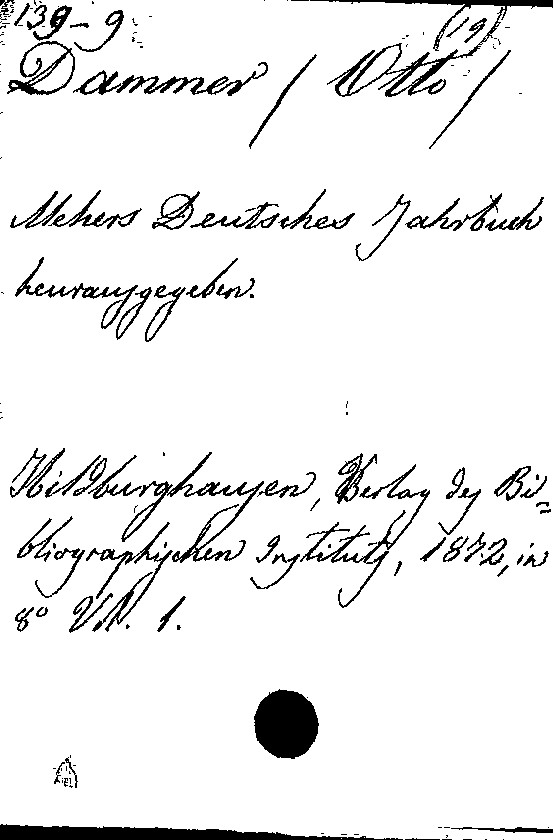 139-9 (19)
Dammer / Otto /
Mehers Deutsches Jahrbuch
heurausgegeben.
Hildburghausen, Verlag des Bi=
bliographischen Instituts, 1872, in
8º Vol. 1.